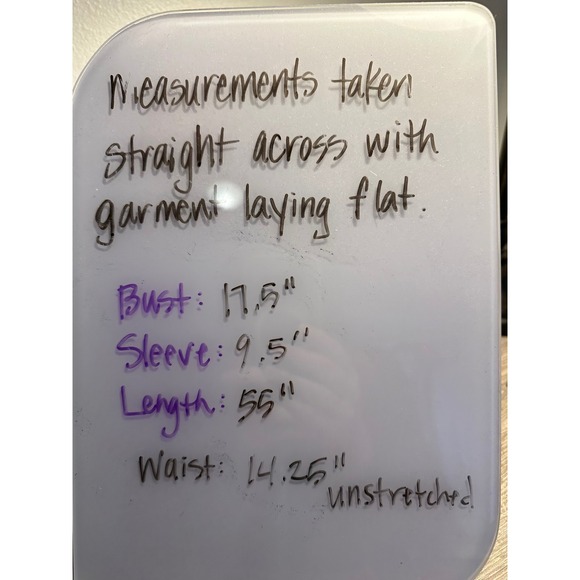 Measurements taken
straight across with
garment laying flat.
Bust: 17.5"
Sleeve: 9.5"
Length: 55"
Waist: 14.25"
unstretched